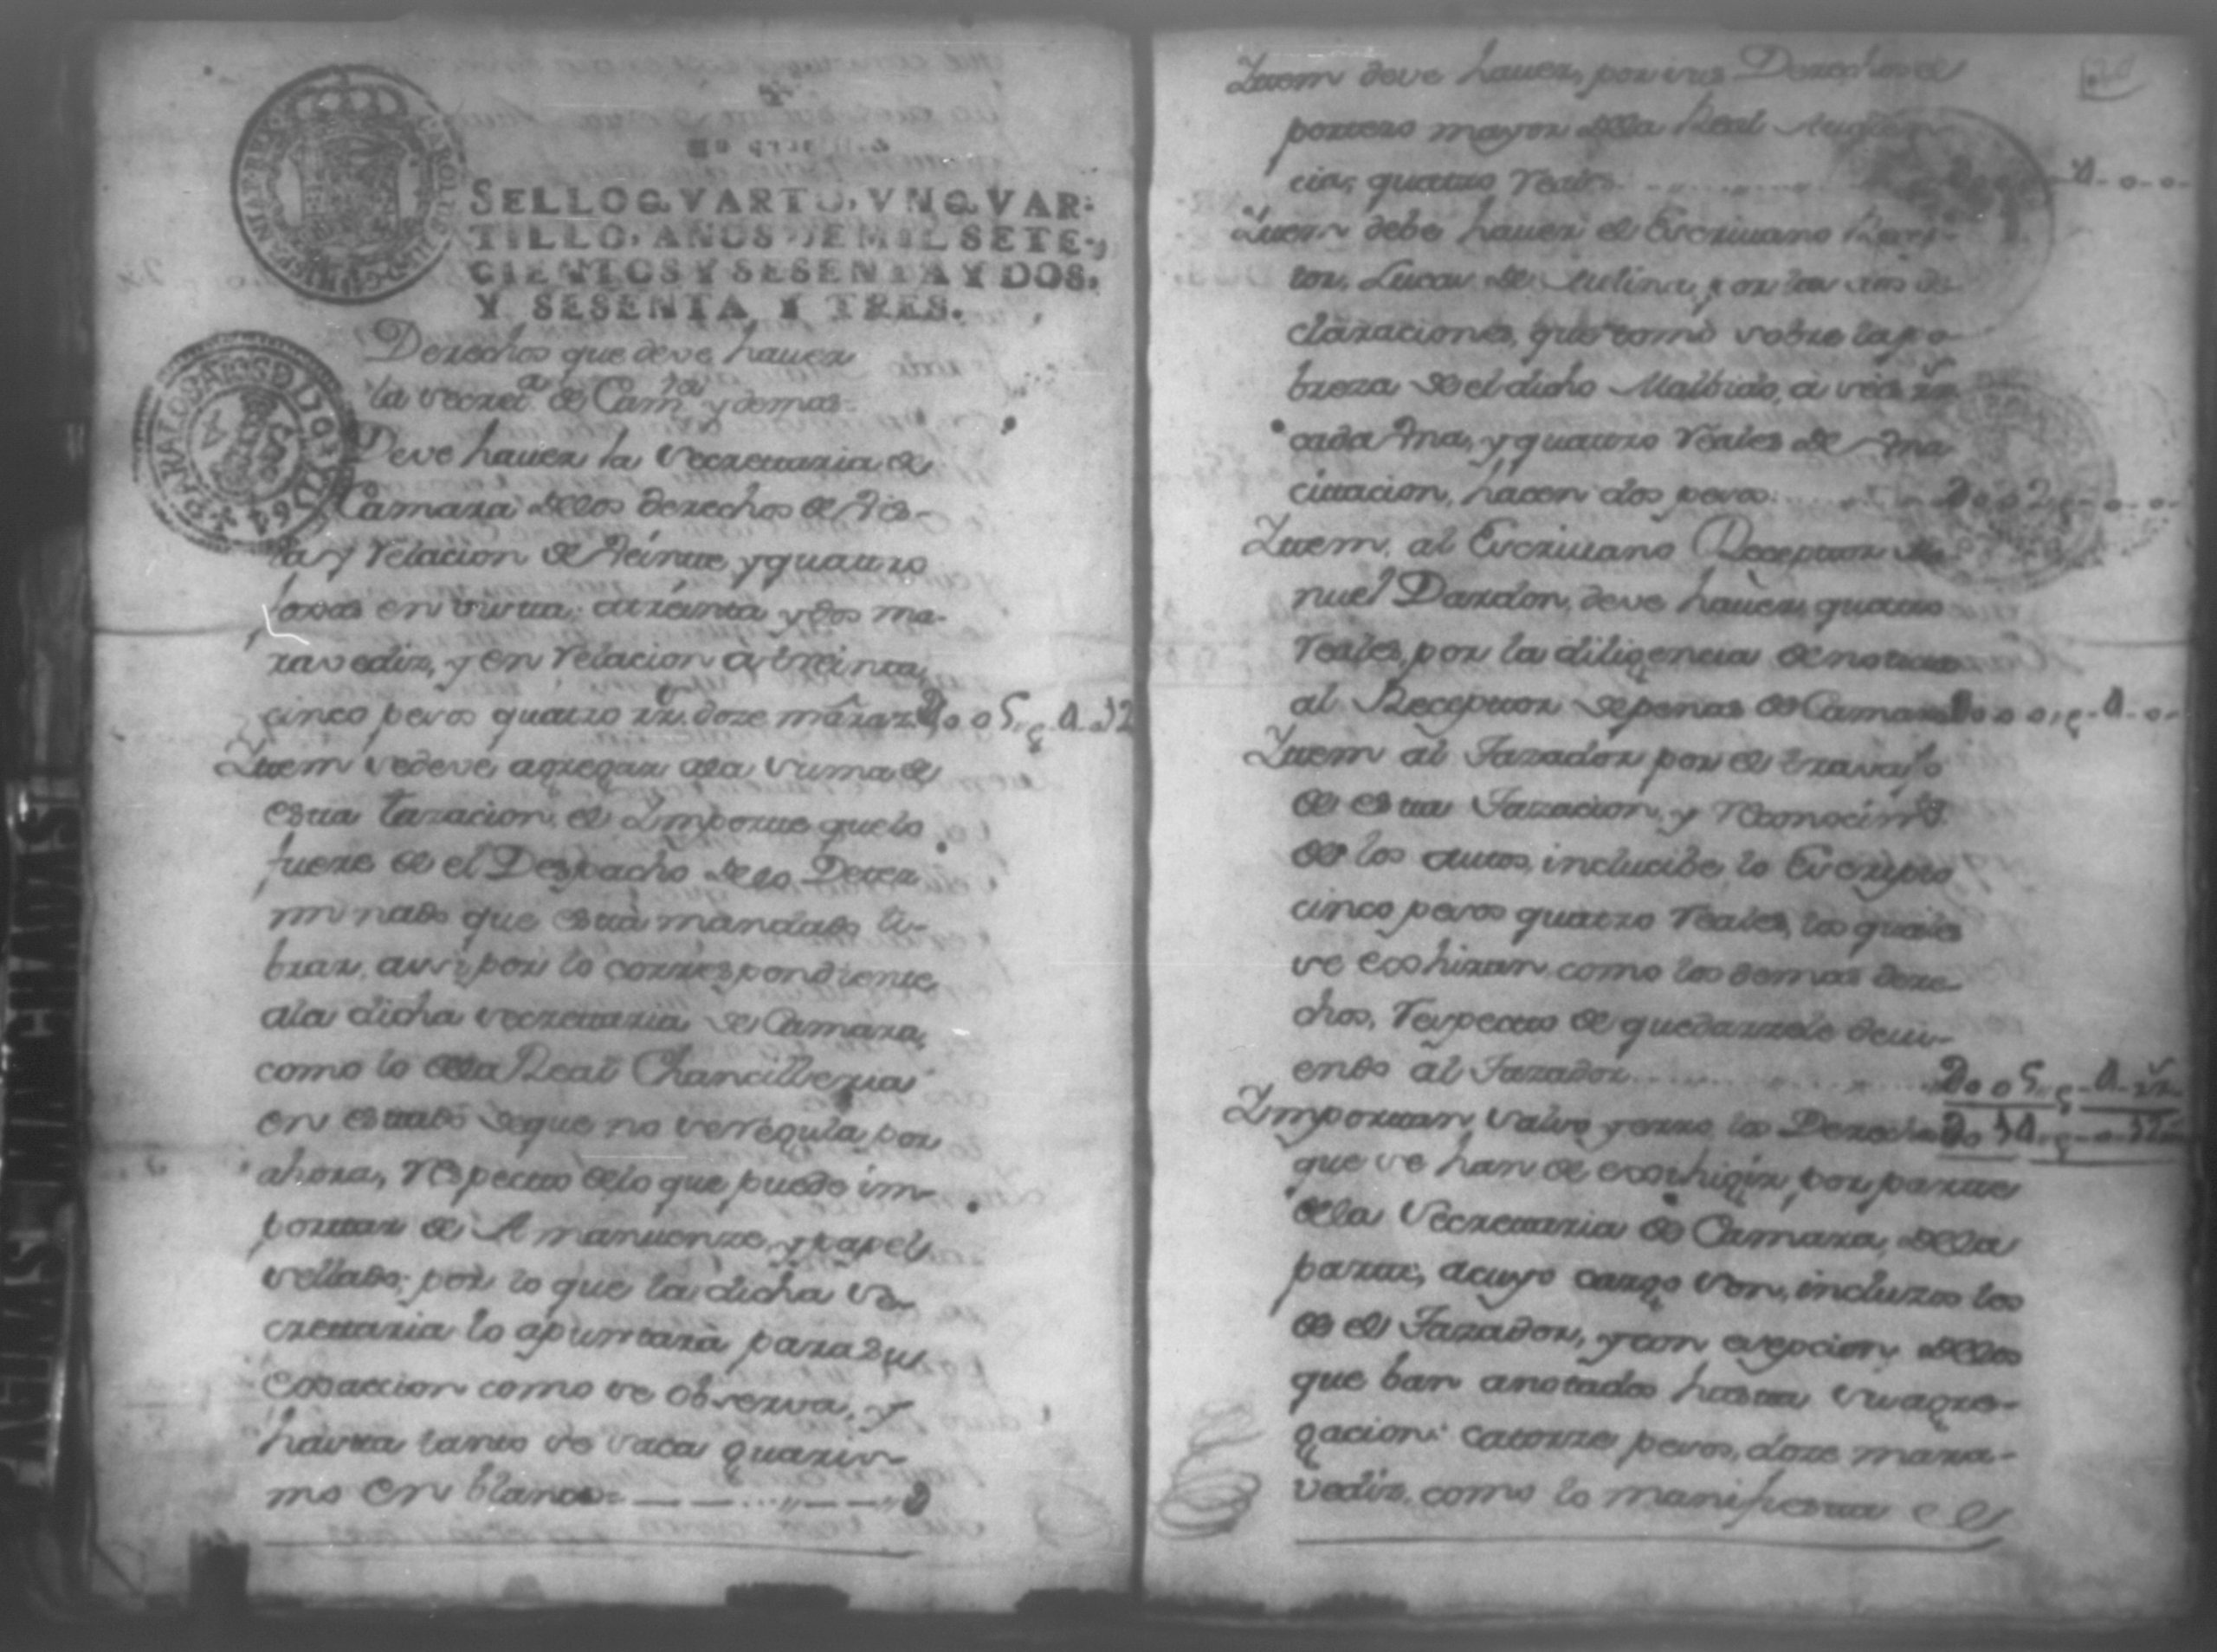 SELLO QVARTO, VN QVAR-
TILLO, AÑOS DE MIL SETE-
CIENTOS Y SESENTA Y DOS,
Y SESENTA Y TRES.
Derechos que deve hauer
la secret.ª de Cam.ra y demas
Deve hauer la Secrettaria de
Camara de los derechos de vis-
ta, y relacion de veinte y quattro
foxas en vista a treinta y dos ma-
ravediz, y en relacion a treinta,
cinco pesos quatro rr.s doze marav.z
Ittem se deve agregar a la suma de
esta tazacion, el Importe que lo
fuere de el Despacho de lo Deter
minado que está mandado li-
brar, assi por lo correspondiente
a la dicha secrettaria de Camara,
como lo de la Real Chancilleria
en estado de que no se regula por
ahora, respecto de lo que puede im-
porttar de Amanuenze, y papel
sellado; por lo que la dicha Se-
crettaria lo apuntará para su
exsaccion como se observa, y
hasta tanto se saca guaris-
mo en blanco
Ittem deve hauer, por sus Derechos el
porttero mayor de la Real Audien-
cia, quattro reales
Ittem debe hauer el Escriuano Recep-
tor, Lucas de Molina, por las dos de-
claraciones, que tomó sobre la po-
breza de el dicho Malbido, a seis rr.s
cada una, y quattro reales de una
cittacion, hacen dos pesos
Ittem, al Escriuano Receptor Ma-
nuel Dardon, deve hauer, quattro
reales, por la diligencia de noticia
al Receptor de penas de Camara
Ittem al Tazador por el travajo
de esta Tazacion, y reconocim.to
de los autos, inclucibe lo Escripto
cinco pesos quatro reales, los quales
se exshiran como los demas dere-
chos, respecto de quedarsele devi-
endo al Tazador
Importtan, salvo yerro, los Derechos
que se han de exshigir, por partte
de la Secrettaria de Camara, de la
partte, a cuyo cargo son, incluzos los
de el Tazador, y con exepcion, de los
que ban anotados hasta su agre-
gacion: catorze pesos, doze mara-
vediz, como lo manifiesta el